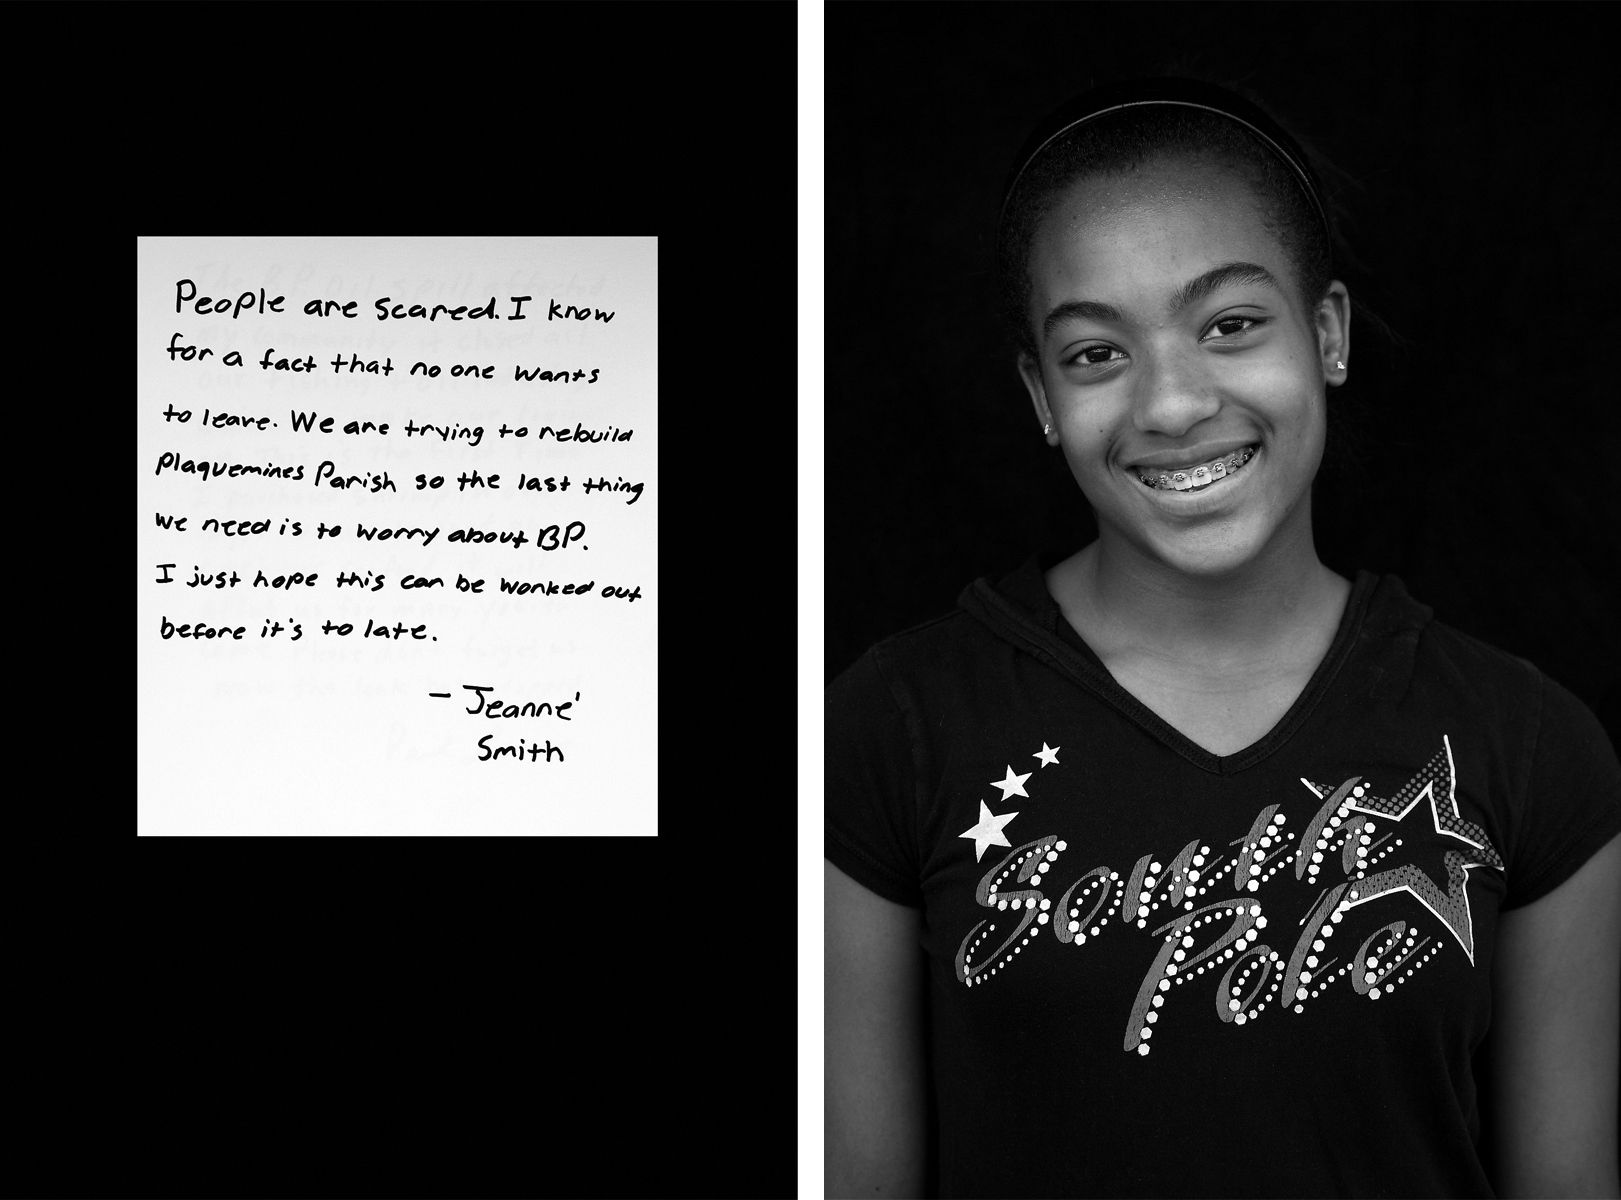 People are scared. I know
for a fact that no one wants
to leave. We are trying to rebuild
Plaquemines Parish so the last thing
we need is to worry about BP.
I just hope this can be worked out
before it's to late.
- Jeanne'
Smith
South
Pole